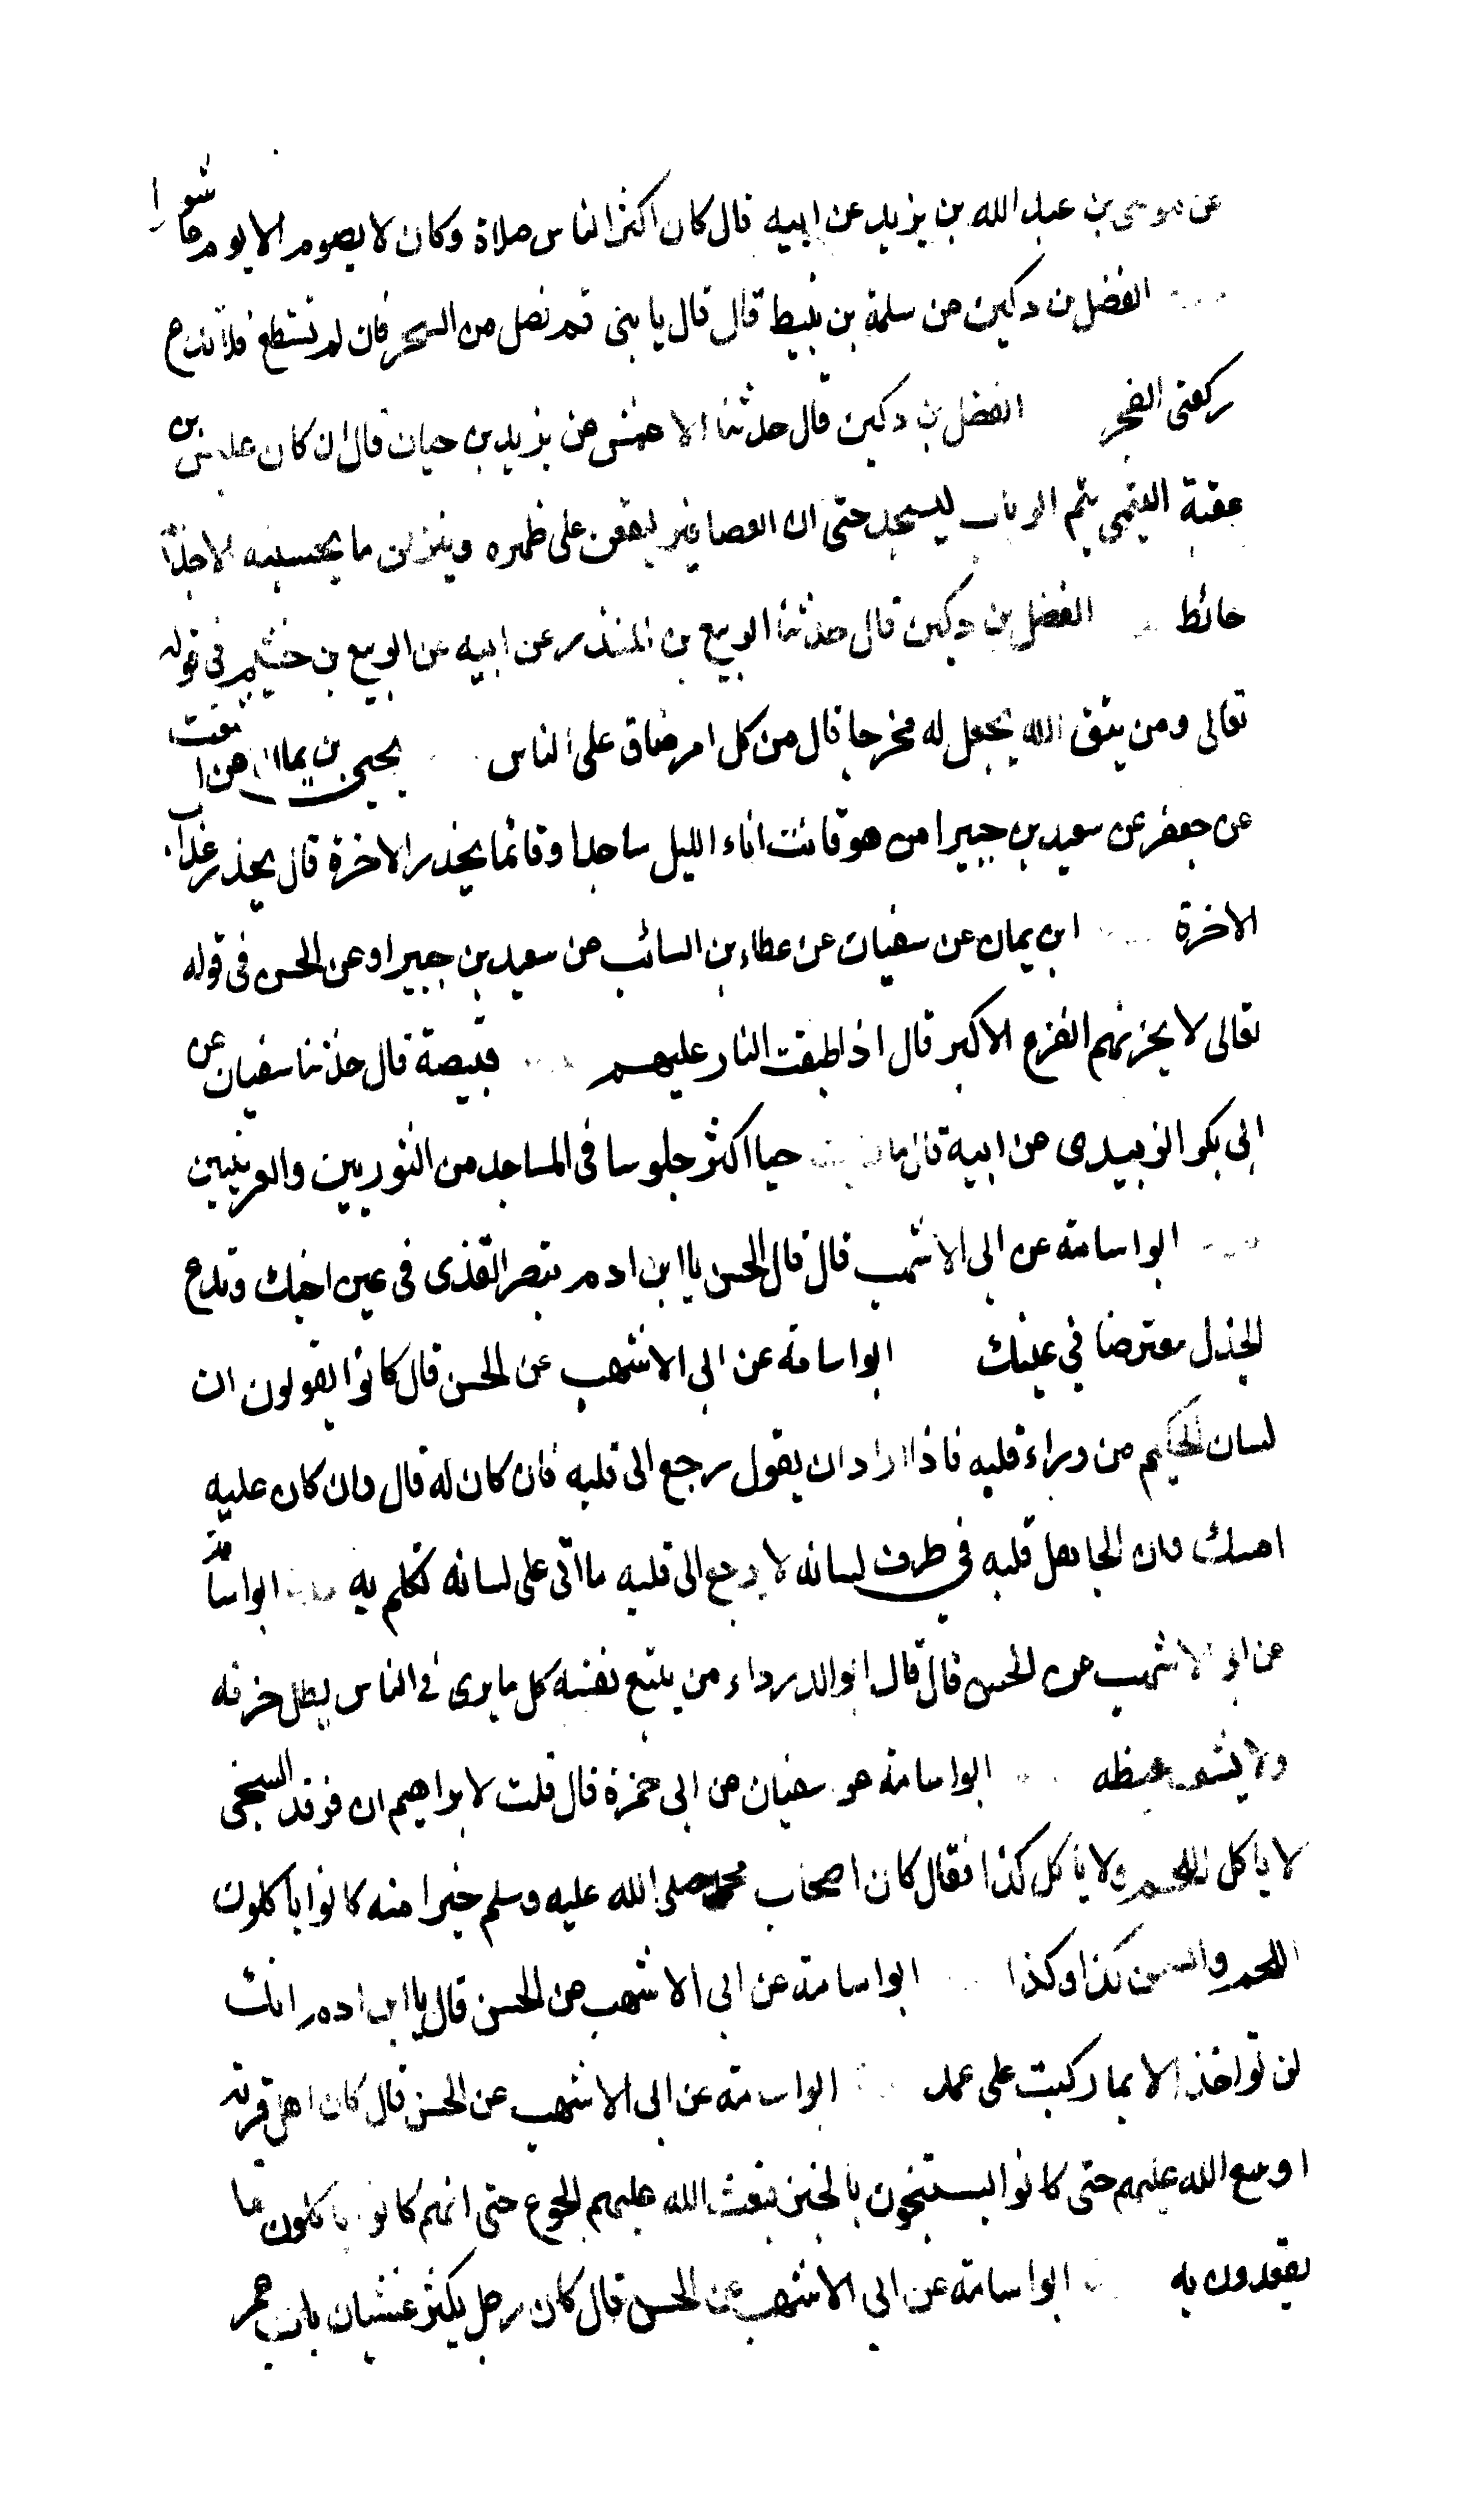 عن موسى بن عبد الله بن يزيد عن ابيه قال كان اكثر الناس صلاة وكان لا يصوم الا يوم عاشورا
الفضل بن دكين عن سلمة بن نبيط قال قال يا بنى قم نصل من السحر فان لم تستطع فلا تدع
ركعتى الفجر الفضل بن دكين قال حدثنا الاعمش عن يزيد بن حيان قال ان كان عنبس بن
عقبة التيمى تيم الرباب ليسجد حتى ان العصافير ليقعن على ظهره وينزلن ما يحسبنه الا جذم
حائط الفضل بن دكين قال حدثنا الربيع بن المنذر عن ابيه عن الربيع بن خثيم فى قوله
تعالى ومن يتق الله يجعل له مخرجا قال من كل امر ضاق على الناس يحيى بن يمان عن اشعث
عن جعفر عن سعيد بن جبير امن هو قانت اناء الليل ساجدا وقائما يحذر الاخرة قال يحذر عذاب
الاخرة ابن يمان عن سفيان عن عطاء بن السائب عن سعيد بن جبير او عن الحسن فى قوله
تعالى لا يحزنهم الفزع الاكبر قال اذا طبقت النار عليهم قبيصة قال حدثنا سفيان عن
ابى بكر الزبيدى عن ابيه قال ما حيا اكثر جلوسا فى المساجد من الثوريين والعرنيين
ابو اسامة عن ابى الاشهب قال قال الحسن يا ابن ادم تبصر القذى فى عين اخيك وتدع
الجذل معترضا في عينك ابو اسامة عن ابى الاشهب عن الحسن قال كانوا يقولون ان
لسان الحكيم من وراء قلبه فاذا اراد ان يقول رجع الى قلبه فان كان له قال وان كان عليه
امسك وان الجاهل قلبه في طرف لسانه لا يرجع الى قلبه ما اتى على لسانه تكلم به ابو اسامة
عن ابى الاشهب عن الحسن قال قال ابو الدرداء من يتبع نفسه كل ما يرى فى الناس يطل حزنه
ولا يشف غيظه ابو اسامة عن سفيان عن ابى حمزة قال قلت لابراهيم ان فرقد السبخى
لا ياكل اللحم ولا ياكل كذا فقال كان اصحاب محمد صلى الله عليه وسلم خيرا منه كانوا ياكلون
اللحم والسمن وكذا وكذا ابو اسامة عن ابى الاشهب عن الحسن قال يا ابن ادم انك
لن تواخذ الا بما ركبت على عمد ابو اسامة عن ابى الاشهب عن الحسن قال كان اهل قرية
اوسع الله عليهم حتى كانوا يستنجون بالخبز فبعث الله عليهم الجوع حتى انهم كانوا ياكلون ما
يقعدون به ابو اسامة عن ابى الاشهب عن الحسن قال كان رجل يكثر غشيان باب عمر